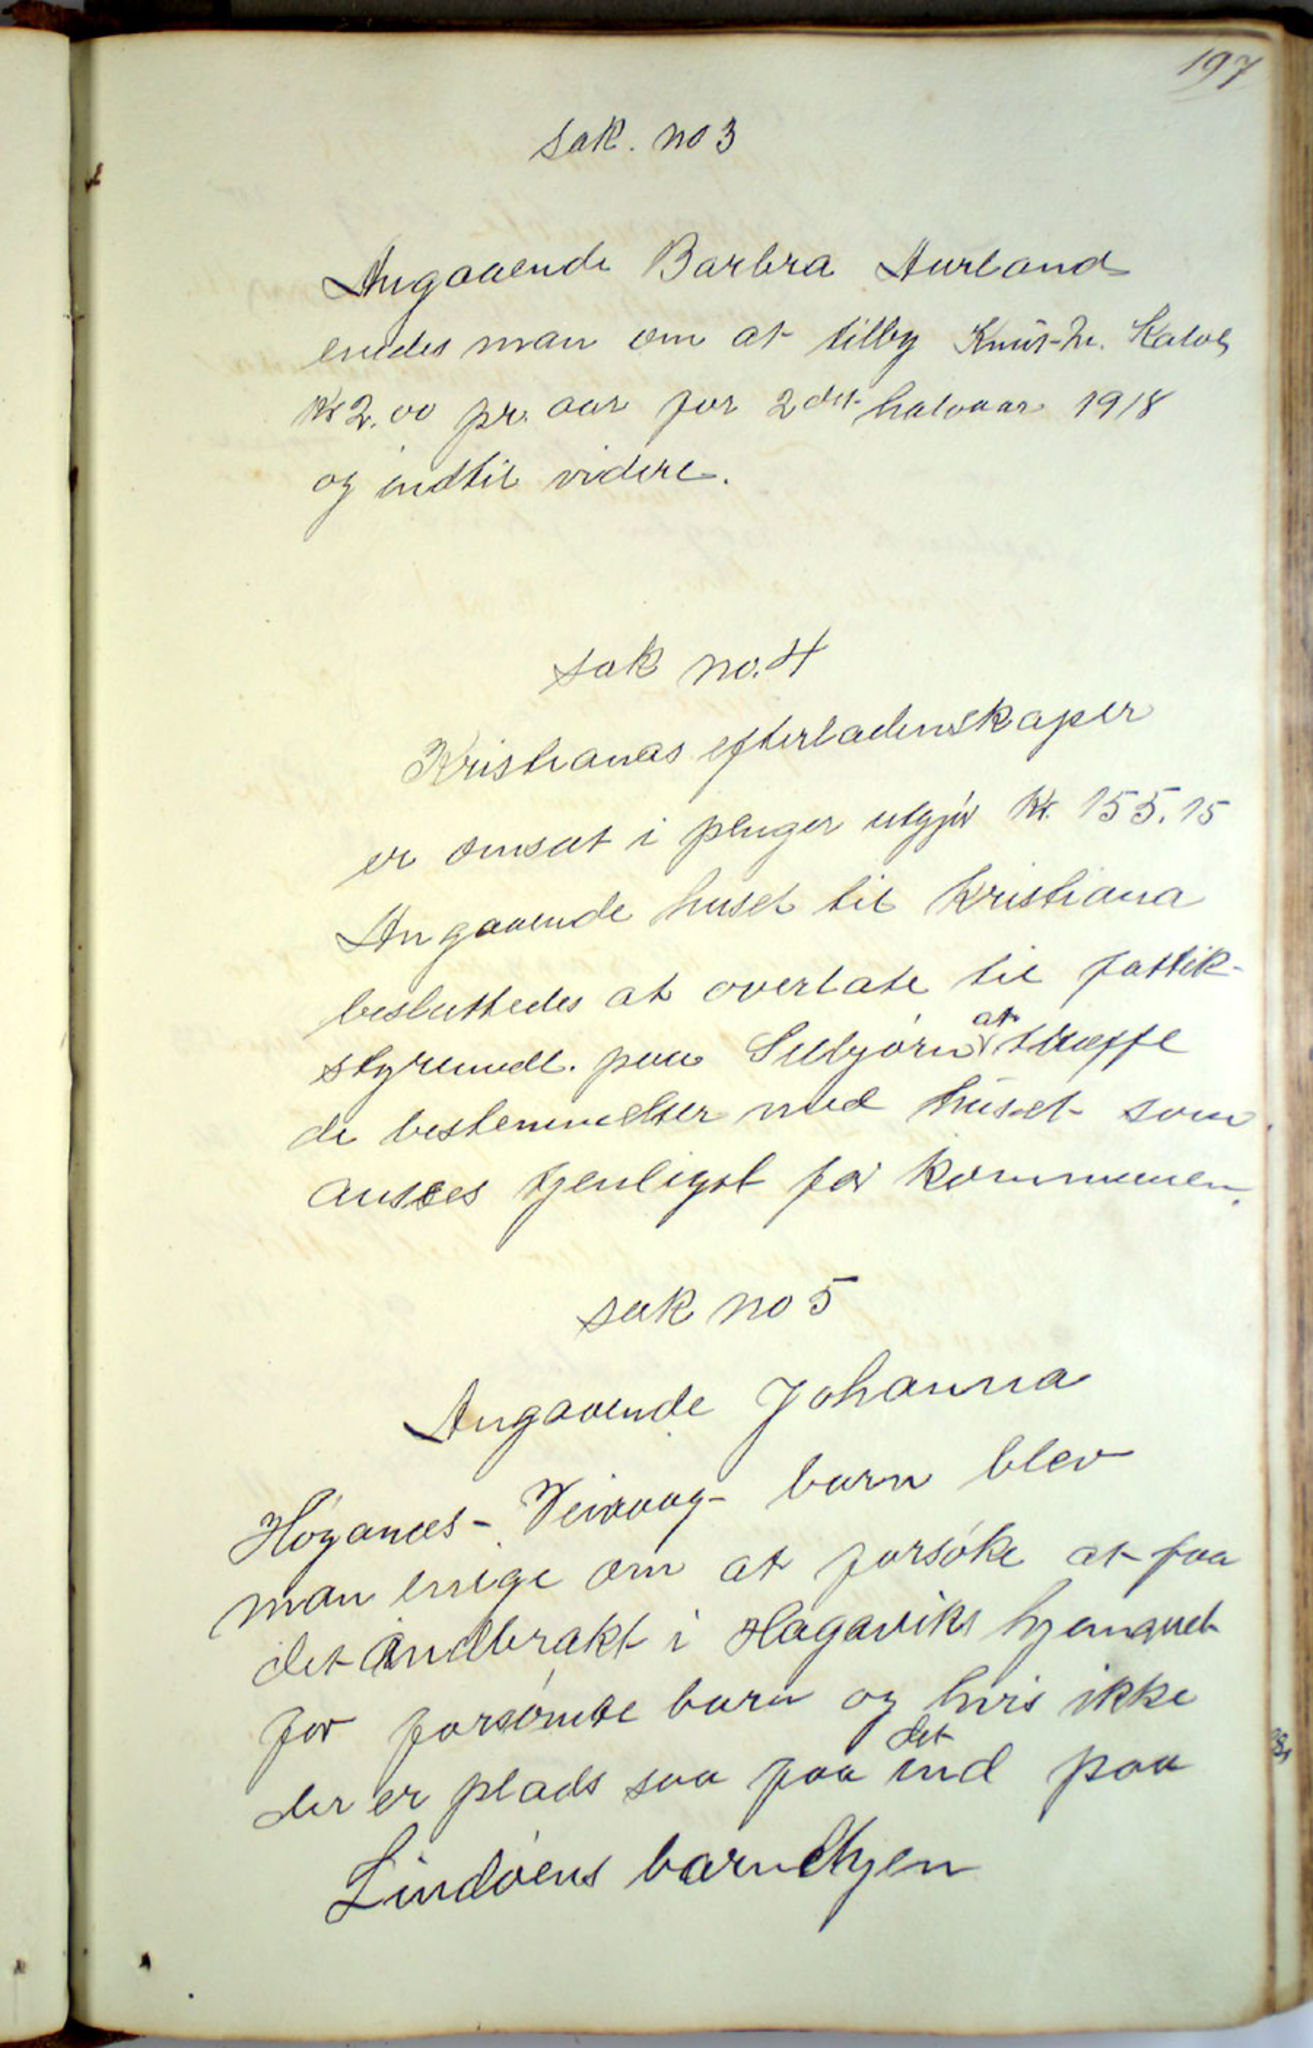 197
Sak. no 3
Angaaende Barbra Aurland
enedes man om at tilby Knut
Kr 2.00 pr. aar for 2det halvaar 1918
og indtil videre.
Sak no. 4
Kristianas efterladenskaper
er omsat i penger utgjør Kr. 155.15
Angaaende huset til Kristiana
besluttedes at overlate til fattik-
styremedl. paa Selbjørn at træffe
de bestemmelser med huset som
ansees tjenligst for kommunen.
sak no 5
Angaaende Johanna
Høganæs - Veivaag - barn blev
man enige om at forsøke at faa
det indbrakt i Hagaviks hjemmet
for forsømte barn og hvis ikke
der er plads saa faa det ind paa
Lindøens barnehjem